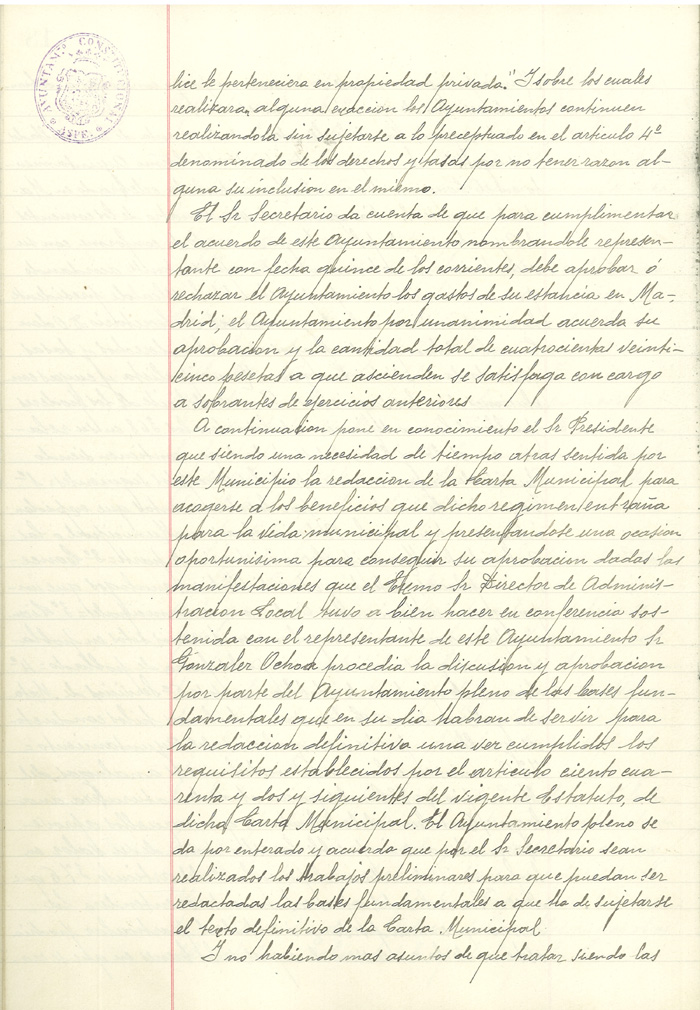 AYUNTAM.º CONSTITUCIONAL
lice le perteneciera en propiedad privada." Y sobre los cuales
realizara alguna exaccion los Ayuntamientos continuen
realizandola sin sujetarse a lo preceptuado en el articulo 4º
denominado de los derechos y tasas por no tener razon al-
guna su inclusion en el mismo.
El Sr Secretario da cuenta de que para cumplimentar
el acuerdo de este Ayuntamiento nombrandole represen-
tante con fecha quince de los corrientes, debe aprobar ó
rechazar el Ayuntamiento los gastos de su estancia en Ma-
drid; el Ayuntamiento por unanimidad acuerda su
aprobacion y la cantidad total de cuatrocientas veinti-
cinco pesetas a que ascienden se satisfaga con cargo
a sobrantes de ejercicios anteriores
A continuacion pone en conocimiento el Sr Presidente
que siendo una necesidad de tiempo atras sentida por
este Municipio la redaccion de la Carta Municipal para
acogerse a los beneficios que dicho regimen entraña
para la vida municipal y presentandose una ocasion
oportunisima para conseguir su aprobacion dadas las
manifestaciones que el Exmo Sr Director de Adminis-
tracion Local tuvo a bien hacer en conferencia sos-
tenida con el representante de este Ayuntamiento Sr
Gonzalez Ochoa procedia la discusion y aprobacion
por parte del Ayuntamiento pleno de las bases fun-
damentales que en su dia habran de servir para
la redaccion definitiva una vez cumplidos los
requisitos establecidos por el articulo ciento cua-
renta y dos y siguientes del vigente Estatuto, de
dicha Carta Municipal. El Ayuntamiento pleno se
da por enterado y acuerda que por el Sr Secretario sean
realizados los trabajos preliminares para que puedan ser
redactadas las bases fundamentales a que ha de sujetarse
el texto definitivo de la Carta Municipal
Y no habiendo mas asuntos de que tratar siendo las